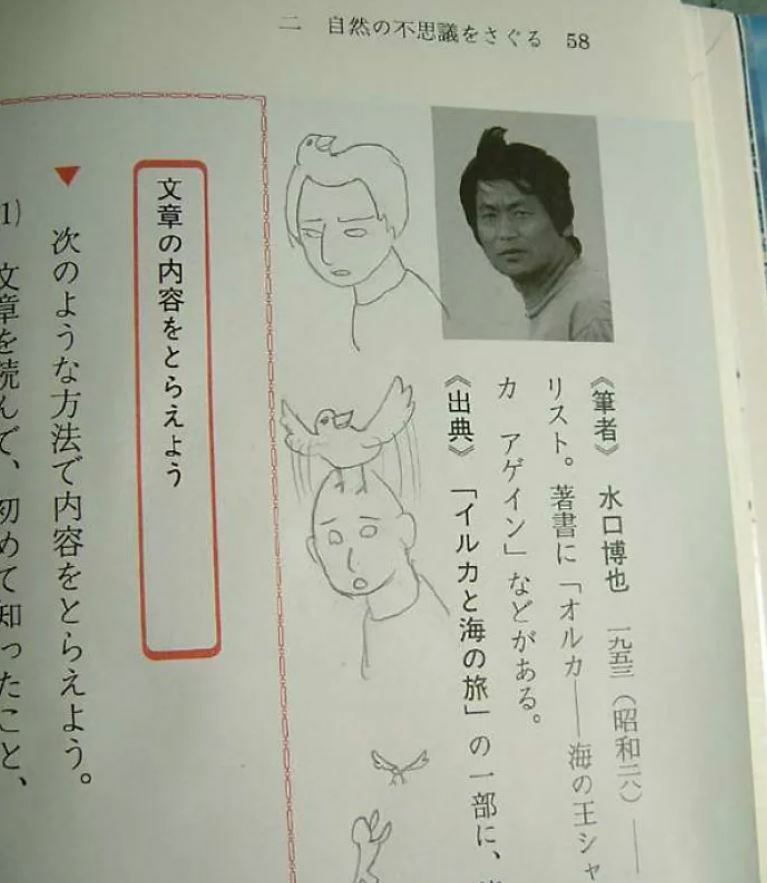 二　自然の不思議をさぐる　58
《筆者》　水口博也　一九五三（昭和二八）——
リスト。著書に「オルカ——海の王シャ
カ　アゲイン」などがある。
《出典》　「イルカと海の旅」の一部に、
文章の内容をとらえよう
▼　次のような方法で内容をとらえよう。
1)　文章を読んで、初めて知ったこと、